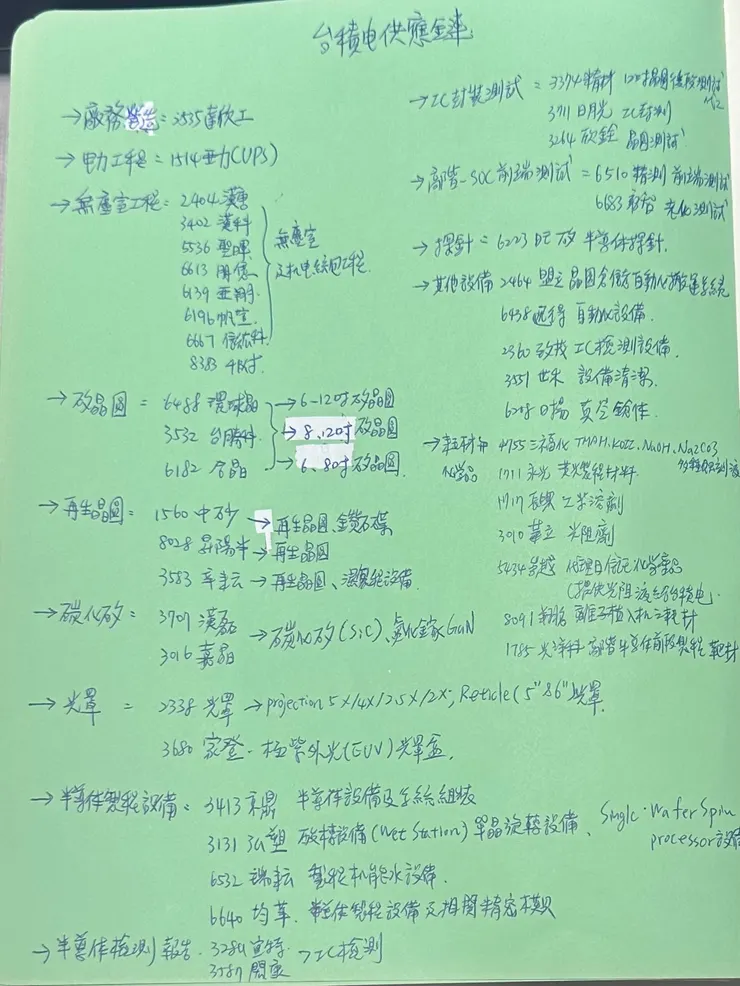 台積电供應鏈
→廠務營造=2535達欣工
→电力工程=1514亞力(UPS)
→無塵室工程=2404漢唐
3402 漢科
5536 聖暉
6613 朋億
6139 亞翔
6196 帆宣
6667 信紘科
8383 千附
無塵室
及机电統包工程
→矽晶圓=6488 環球晶→6-12吋矽晶圓
3532 台勝科→8、12吋矽晶圓
6182 合晶→6、8吋矽晶圓
→再生晶圓=1560 中砂→再生晶圓、鑽石碟
8028 昇陽半→再生晶圓
3583 辛耘→再生晶圓、濕製程設備
→碳化矽=3707 漢磊
3016 嘉晶
→碳化矽(SiC)、氮化鎵GaN
→光罩=2338 光罩→projection 5X/4X/2.5X/2X; Reticle(5"&6")光罩
3680 家登-極紫外光(EUV)光罩盒
→半導体製程設備=3413 京鼎 半導体設備及系統組裝
3131 弘塑 酸槽設備(Wet Station)單晶旋轉設備、Single-Wafer Spin
processor設備
6532 瑞耘 製程机能水設備
6640 均華 半導体製程設備及相關精密模具
→半導体檢測報告. 3289 宜特
3587 閎康
→IC檢測
→IC封裝測試=3374 精材 12吋晶圓後段測試
代工
3711 日月光 IC封測
3264 欣銓 晶圓測試
→高階-SOC前端測試=6510 精測 前端測試
6683 雍智 老化測試
→探針=6223 旺矽 半導体探針
→其他設備 2464 盟立 晶圓倉儲自動化搬運系統
6438 迅得 自動化設備
2360 致茂 IC檢測設備
3551 世禾 設備清潔
6208 日揚 真空
→耗材和
化學品
4755 三福化 TMAH、KOH、NaOH、Na2CO3
1711 永光 黃光製程材料
1717 長興 工業溶劑
3010 華立 光阻劑
5434 崇越 代理日信越化學品
(提供光阻液給台積电
8091 翔名 離子植入机之耗材
1785 光洋科 高階半導体前段製程靶材